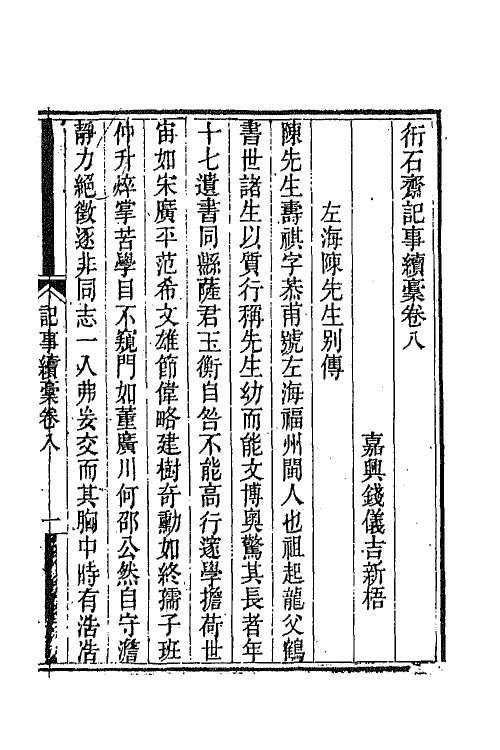 衎石齋記事續稾卷八
嘉興錢儀吉新梧
左海陳先生別傳
陳先生壽祺字恭甫號左海福州閩人也祖起龍父鶴
書世諸生以質行稱先生幼而能文博奧驚其長者年
十七遺書同縣薩君玉衡自咎不能高行邃學擔荷世
宙如宋廣平范希文雄節偉略建樹奇勳如終孺子班
仲升焠掌苦學目不窺門如董廣川何邵公然自守澹
靜力絕徵逐非同志一人弗妄交而其胸中時有浩浩
記事續稾卷八 一